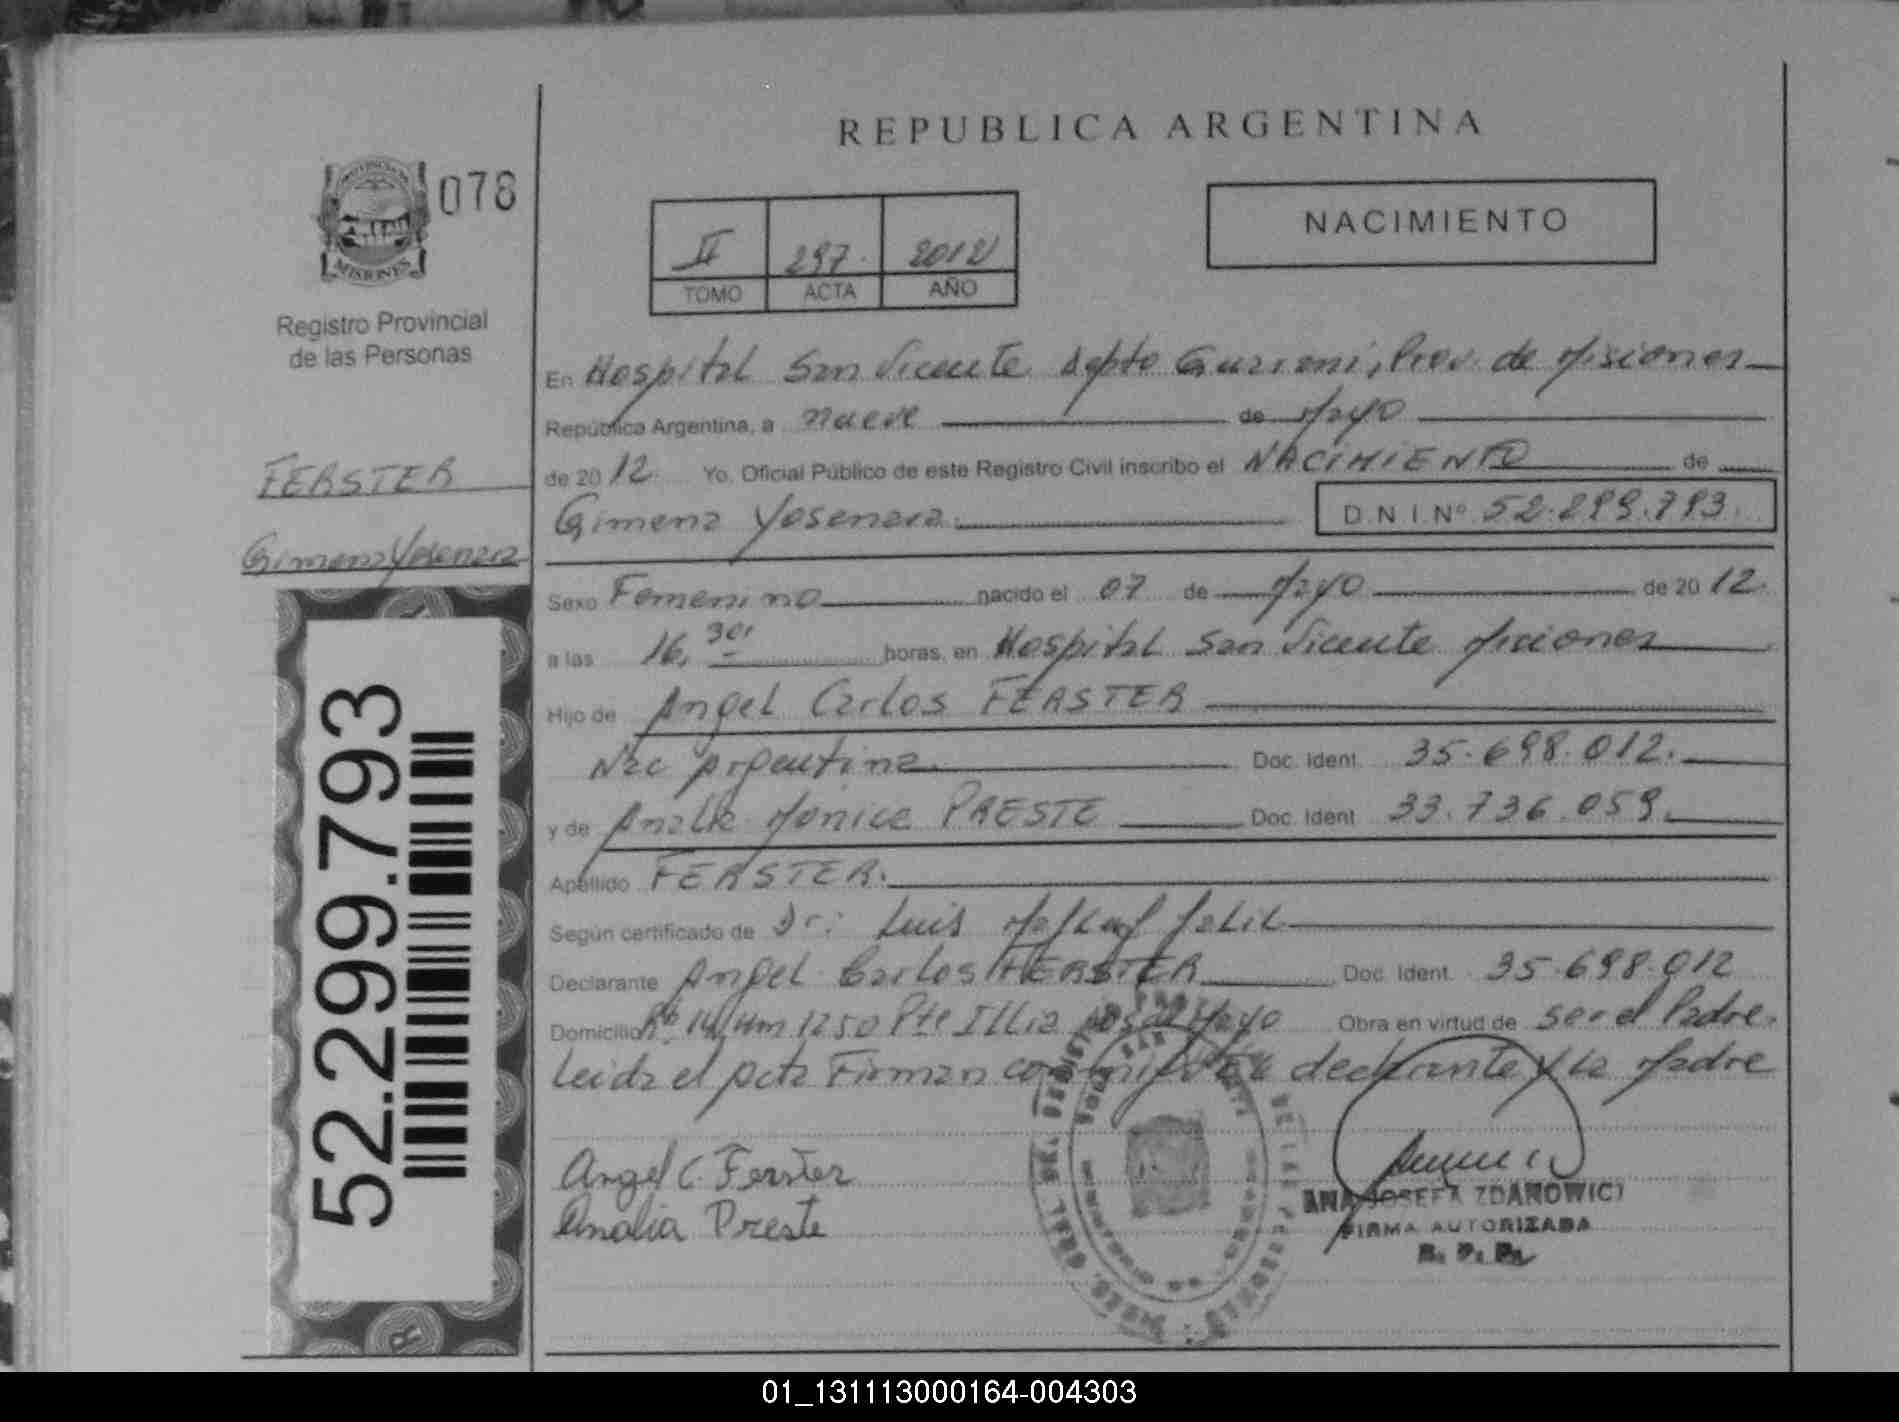 REPUBLICA ARGENTINA
078
MISIONES
Registro Provincial
de las Personas
II 297 2012
TOMO ACTA AÑO
NACIMIENTO
FERSTER
Gimena Yosenara
52.299.793
En Hospital San Vicente Depto Guarani, Prov. de Misiones
República Argentina, a nueve de Mayo
de 2012 Yo, Oficial Público de este Registro Civil inscribo el NACIMIENTO de
Gimena Yosenara. D.N.I. Nº 52.299.793.
Sexo Femenino nacido el 07 de Mayo de 2012.
a las 16,30 horas, en Hospital San Vicente Misiones
Hijo de Angel Carlos FERSTER
Nac Argentina. Doc. Ident. 35.698.012.
y de Analia Monica PRESTE Doc. Ident. 33.736.059.
Apellido FERSTER.
Según certificado de Dr: Luis
Declarante Angel Carlos FERSTER Doc. Ident. 35.698.012
Domicilio 1250 Pte Illia Mayo Obra en virtud de ser el Padre.
Leida el Acta Firman conmigo el declarante y la Madre
Angel C. Ferster
Analia Preste
ANA JOSEFA ZDANOWICZ
FIRMA AUTORIZADA
R. P. P.
01_131113000164-004303